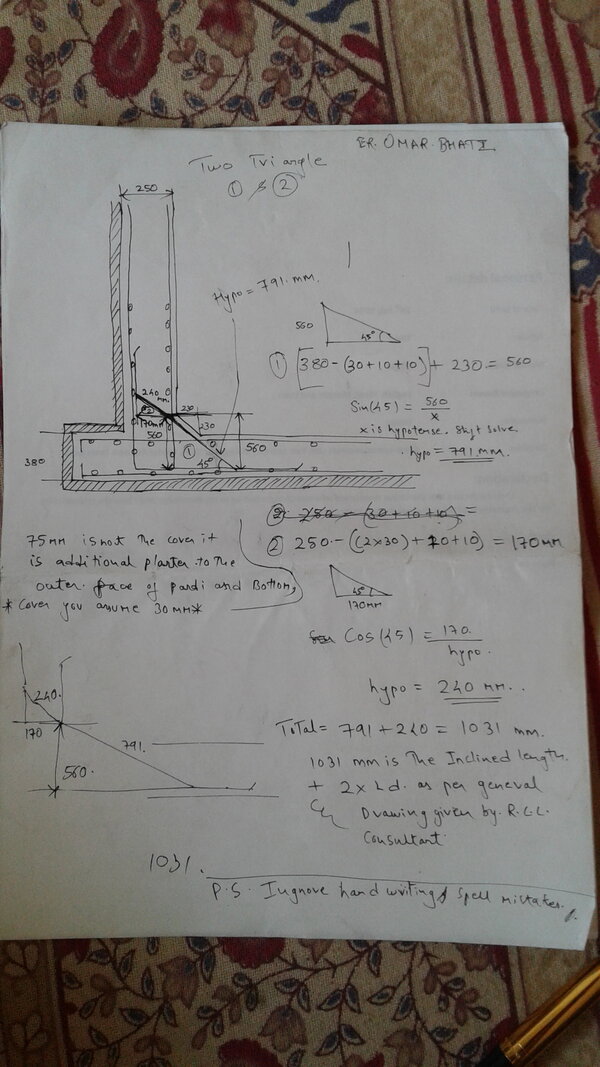 ER. OMAR BHATI
Two Triangle
① & ②
250
Hypo = 791. mm.
560
45°
① [380 - (30+10+10)] + 230 = 560
Sin(45) = 560/x
x is hypotense. Shift solve.
hypo = 791 mm.
240
mm.
②
170mm
230
230
560
560
①
45°
380
②. 250 - (30+10+10) =
② 250 - ((2x30) + 10+10) = 170mm
75mm is not the cover it
is additional plaster to the
outer face of Pardi and Bottom,
* Cover you assume 30 mm *
45°
170mm
Cos(45) = 170./hypo.
hypo = 240 mm.
240.
170
791.
560.
Total = 791 + 240 = 1031 mm.
1031 mm is The Inclined length.
+ 2 x Ld. as per general
Drawing given by. R.C.C.
Consultant.
1031.
P.S. Iugnore hand writing & spell mistakes.